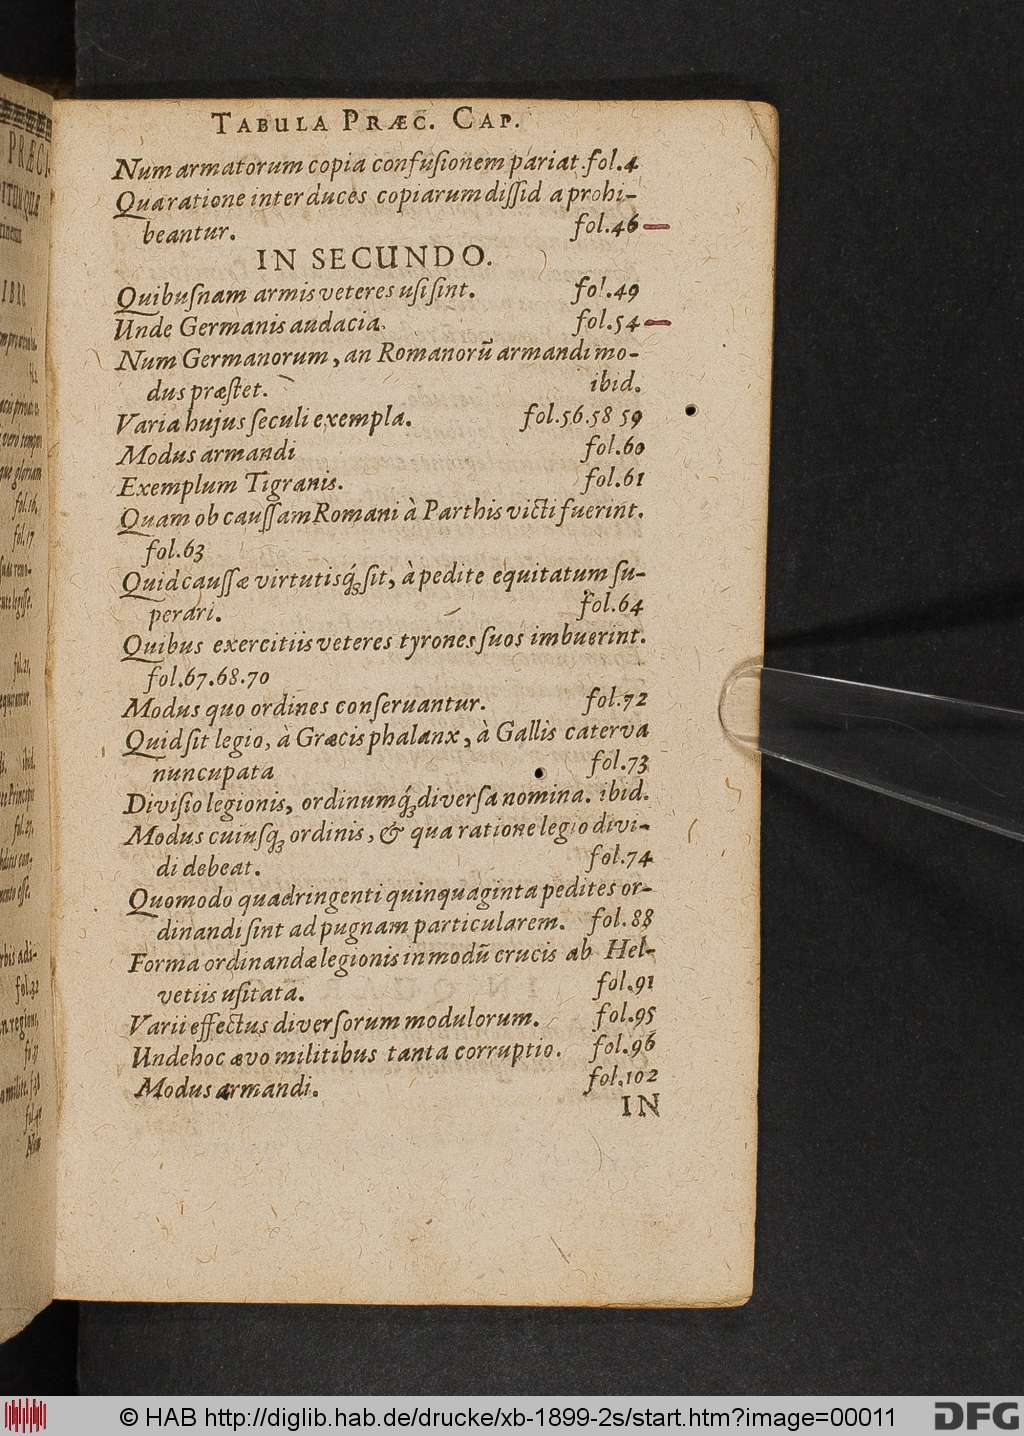 TABULA PRÆC. CAP.
Num armatorum copia confusionem pariat. fol.4
Qua ratione inter duces copiarum dissid a prohi-
beantur. fol.46
IN SECUNDO.
Quibusnam armis veteres usi sint. fol.49
Unde Germanis audacia. fol.54
Num Germanorum, an Romanorū armandi mo-
dus præstet. ibid.
Varia hujus seculi exempla. fol.56.58 59
Modus armandi fol.60
Exemplum Tigranis. fol.61
Quam ob caussam Romani à Parthis victi fuerint.
fol.63
Quid caussæ virtutisq́; sit, à pedite equitatum su-
perari. fol.64
Quibus exercitiis veteres tyrones suos imbuerint.
fol.67.68.70
Modus quo ordines conseruantur. fol.72
Quid sit legio, à Græcis phalanx, à Gallis caterva
nuncupata fol.73
Divisio legionis, ordinumq́; diversa nomina. ibid.
Modus cuiusq́; ordinis, & qua ratione legio divi-
di debeat. fol.74
Quomodo quadringenti quinquaginta pedites or-
dinandi sint ad pugnam particularem. fol.88
Forma ordinandæ legionis in modū crucis ab Hel-
vetiis usitata. fol.91
Varii effectus diversorum modulorum. fol.95
Unde hoc ævo militibus tanta corruptio. fol.96
Modus armandi. fol.102
IN
© HAB http://diglib.hab.de/drucke/xb-1899-2s/start.htm?image=00011
DFG